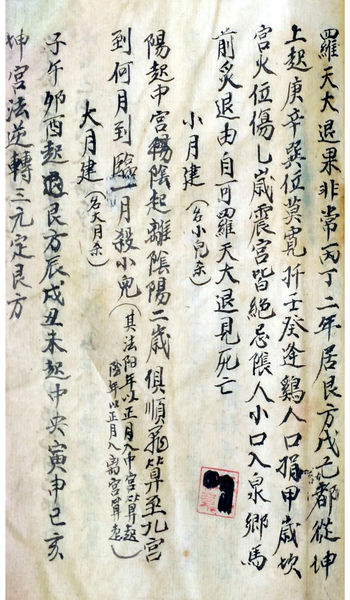 羅天大退果非常丙丁二年居艮方戊己都從坤
上起庚辛巽位莫覓扦壬癸逢鷄人口損甲歲坎
宮火位傷乚歲震宮皆絕忌人小口入泉鄉馬
前炙退由自可羅天大退見死亡
小月建(名小兒杀)
陽起中宮陰起離陰陽二歲俱順飛算至九宮
到何月到臨一月殺小兒(其法阳年以正月入中宮算起
陰年以正月入离宮算起)
大月建(名大月杀)
子午卯酉起艮方辰戌丑未起中央寅申巳亥
坤宮法逆轉三元定艮方